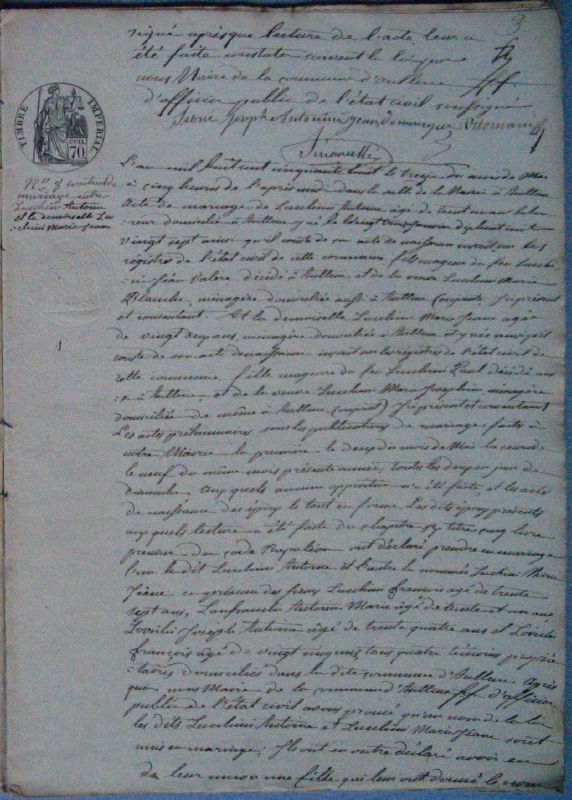 3
signé après que lecture de l'acte leur a
été faite constaté suivant la loi par
nous Maire de la commune d'Aullene fff
d'officier public de l'état civil soussigné
Joseph Antoine
TIMBRE IMPERIAL
70
L'an mil huit cent cinquante huit le treize du mois de Mai
à cinq heures de l'après midi dans la salle de la Mairie à Aullene
mariage entre
Lucchini Antoine
et la demoiselle Luc
chini Marie Jeanne
Acte de mariage de Lucchini Antoine âgé de trente un ans labou
reur domicilié à Aullene y né le vingt janvier dix huit cent
vingt sept ainsi qu'il conste de son acte de naissance inscrit sur les
régistres de l'état civil de cette commune, fils majeur du feu Lucchi
ni Jean Valere décédé à Aullene et de la veuve Lucchini Marie
Blanche, ménagère domiciliée aussi à Aullene ci présent
et consentant. Et la demoiselle Lucchini Marie Jeanne agée
de vingt deux ans, ménagère domiciliée à Aullene et y née ainsi qu'il
conste de son acte de naissance inscrit sur les registres de l'état civil de
cette commune, fille majeure du feu Lucchini Paul décédé aus
si à Aullene, et de la veuve Lucchini Marie Josephine ménagère
domiciliée de même à Aullene ci présent et consentant
Les actes préliminaires sont les publications de mariage faites à
notre Mairie la première le deux du mois de Mai la seconde
le neuf du même mois présente année, toutes les deux un jour de
dimanche, auxquels aucune opposition n'a été faite, et les actes
de naissance des époux le tout en forme. Les dits époux présents
auxquels lecture a été faite du chapitre six titre cinq livre
premier du code Napoléon ont déclaré prendre en mariage
l'un le dit Lucchini Antoine et l'autre la nommée Lucchini Marie
Jeanne en présence des sieurs Lucchini françois agé de trente
sept ans, Lanfranchi Antoine Marie âgé de trente et un ans
Lovichi Joseph Antoine âgé de trente quatre ans et Lovichi
françois âgé de vingt cinq ans, tous quatre témoins proprié
taires domiciliés dans la dite commune d'Aullene. Après
quoi nous Maire de la commune d'Aullene fff d'officier
public de l'état civil avons prononcé qu'au nom de la loi
les dits Lucchini Antoine et Lucchini Marie Jeanne sont
unis en mariage; Ils ont en outre déclaré avoir eu
de leur union une fille qui leur ont donné le nom
1